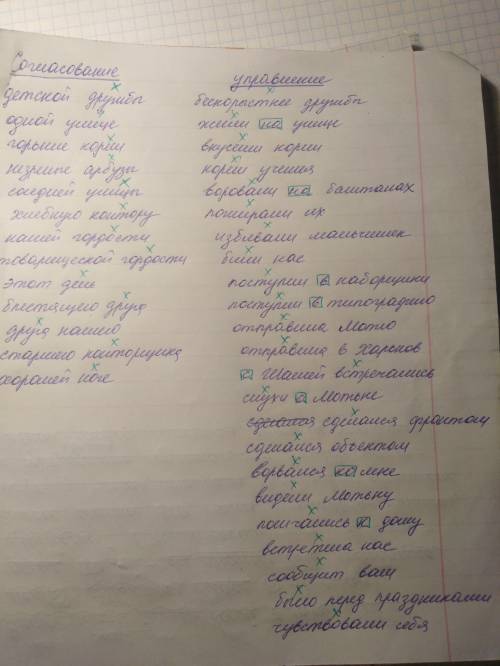 Согласование
детской дружбы
одной улице
горькие корни
незрелые арбузы
соседней улицы
хлебную контору
нашей гордости
товарищеской гордости
этот день
блестящего друга
друга нашего
старшего конторщика
хорошей ноге
управление
бескорыстнее дружбы
жили на улице
вкусили корни
корни учения
воровали на баштанах
пожирали их
избивали мальчишек
били нас
поступил в наборщики
поступил в типографию
отправила Мотю
отправила в Харьков
с Шашей встречались
слухи о Мотьке
сделался сделался франтом
сделался объектом
ворвался ко мне
видели Мотьку
помчались к дому
встретила нас
сообщит вам
было перед праздниками
чувствовали себя